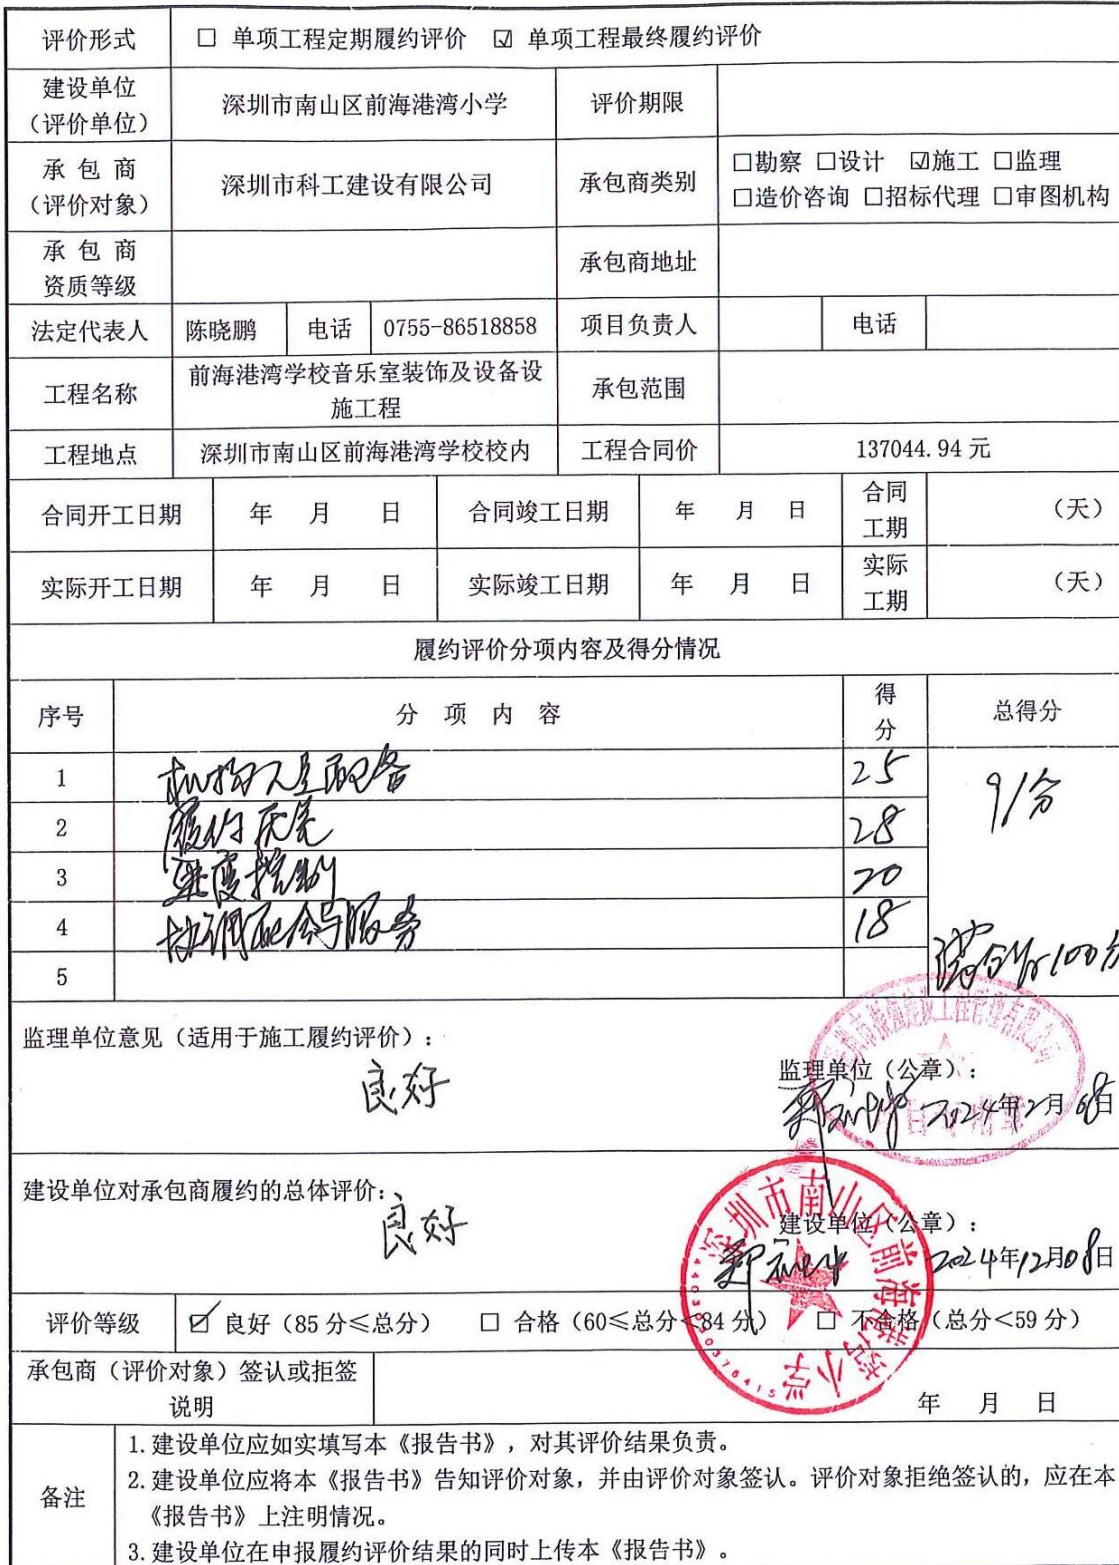 评价形式 □ 单项工程定期履约评价 ☑ 单项工程最终履约评价
建设单位
（评价单位）
深圳市南山区前海港湾小学
评价期限
承 包 商
（评价对象）
深圳市科工建设有限公司
承包商类别
□勘察 □设计 ☑施工 □监理
□造价咨询 □招标代理 □审图机构
承 包 商
资质等级
承包商地址
法定代表人 陈晓鹏 电话 0755-86518858 项目负责人 电话
工程名称
前海港湾学校音乐室装饰及设备设
施工程
承包范围
工程地点 深圳市南山区前海港湾学校校内 工程合同价 137044.94 元
合同开工日期 年 月 日 合同竣工日期 年 月 日
合同
工期
（天）
实际开工日期 年 月 日 实际竣工日期 年 月 日
实际
工期
（天）
履约评价分项内容及得分情况
序号 分 项 内 容
得
分
总得分
1 机构人员配备 25
91分
2 履约质量 28
3 进度控制 20
4 协调配合与服务 18
5
满分为100分
监理单位意见（适用于施工履约评价）：
良好
监理单位（公章）：
2024年12月08日
建设单位对承包商履约的总体评价：
良好
建设单位（公章）：
2024年12月08日
深圳市南山区前海港湾小学
评价等级 ☑ 良好（85 分≤总分） □ 合格（60≤总分≤84 分） □ 不合格（总分<59 分）
承包商（评价对象）签认或拒签
说明
年 月 日
备注
1.建设单位应如实填写本《报告书》，对其评价结果负责。
2.建设单位应将本《报告书》告知评价对象，并由评价对象签认。评价对象拒绝签认的，应在本
《报告书》上注明情况。
3.建设单位在申报履约评价结果的同时上传本《报告书》。